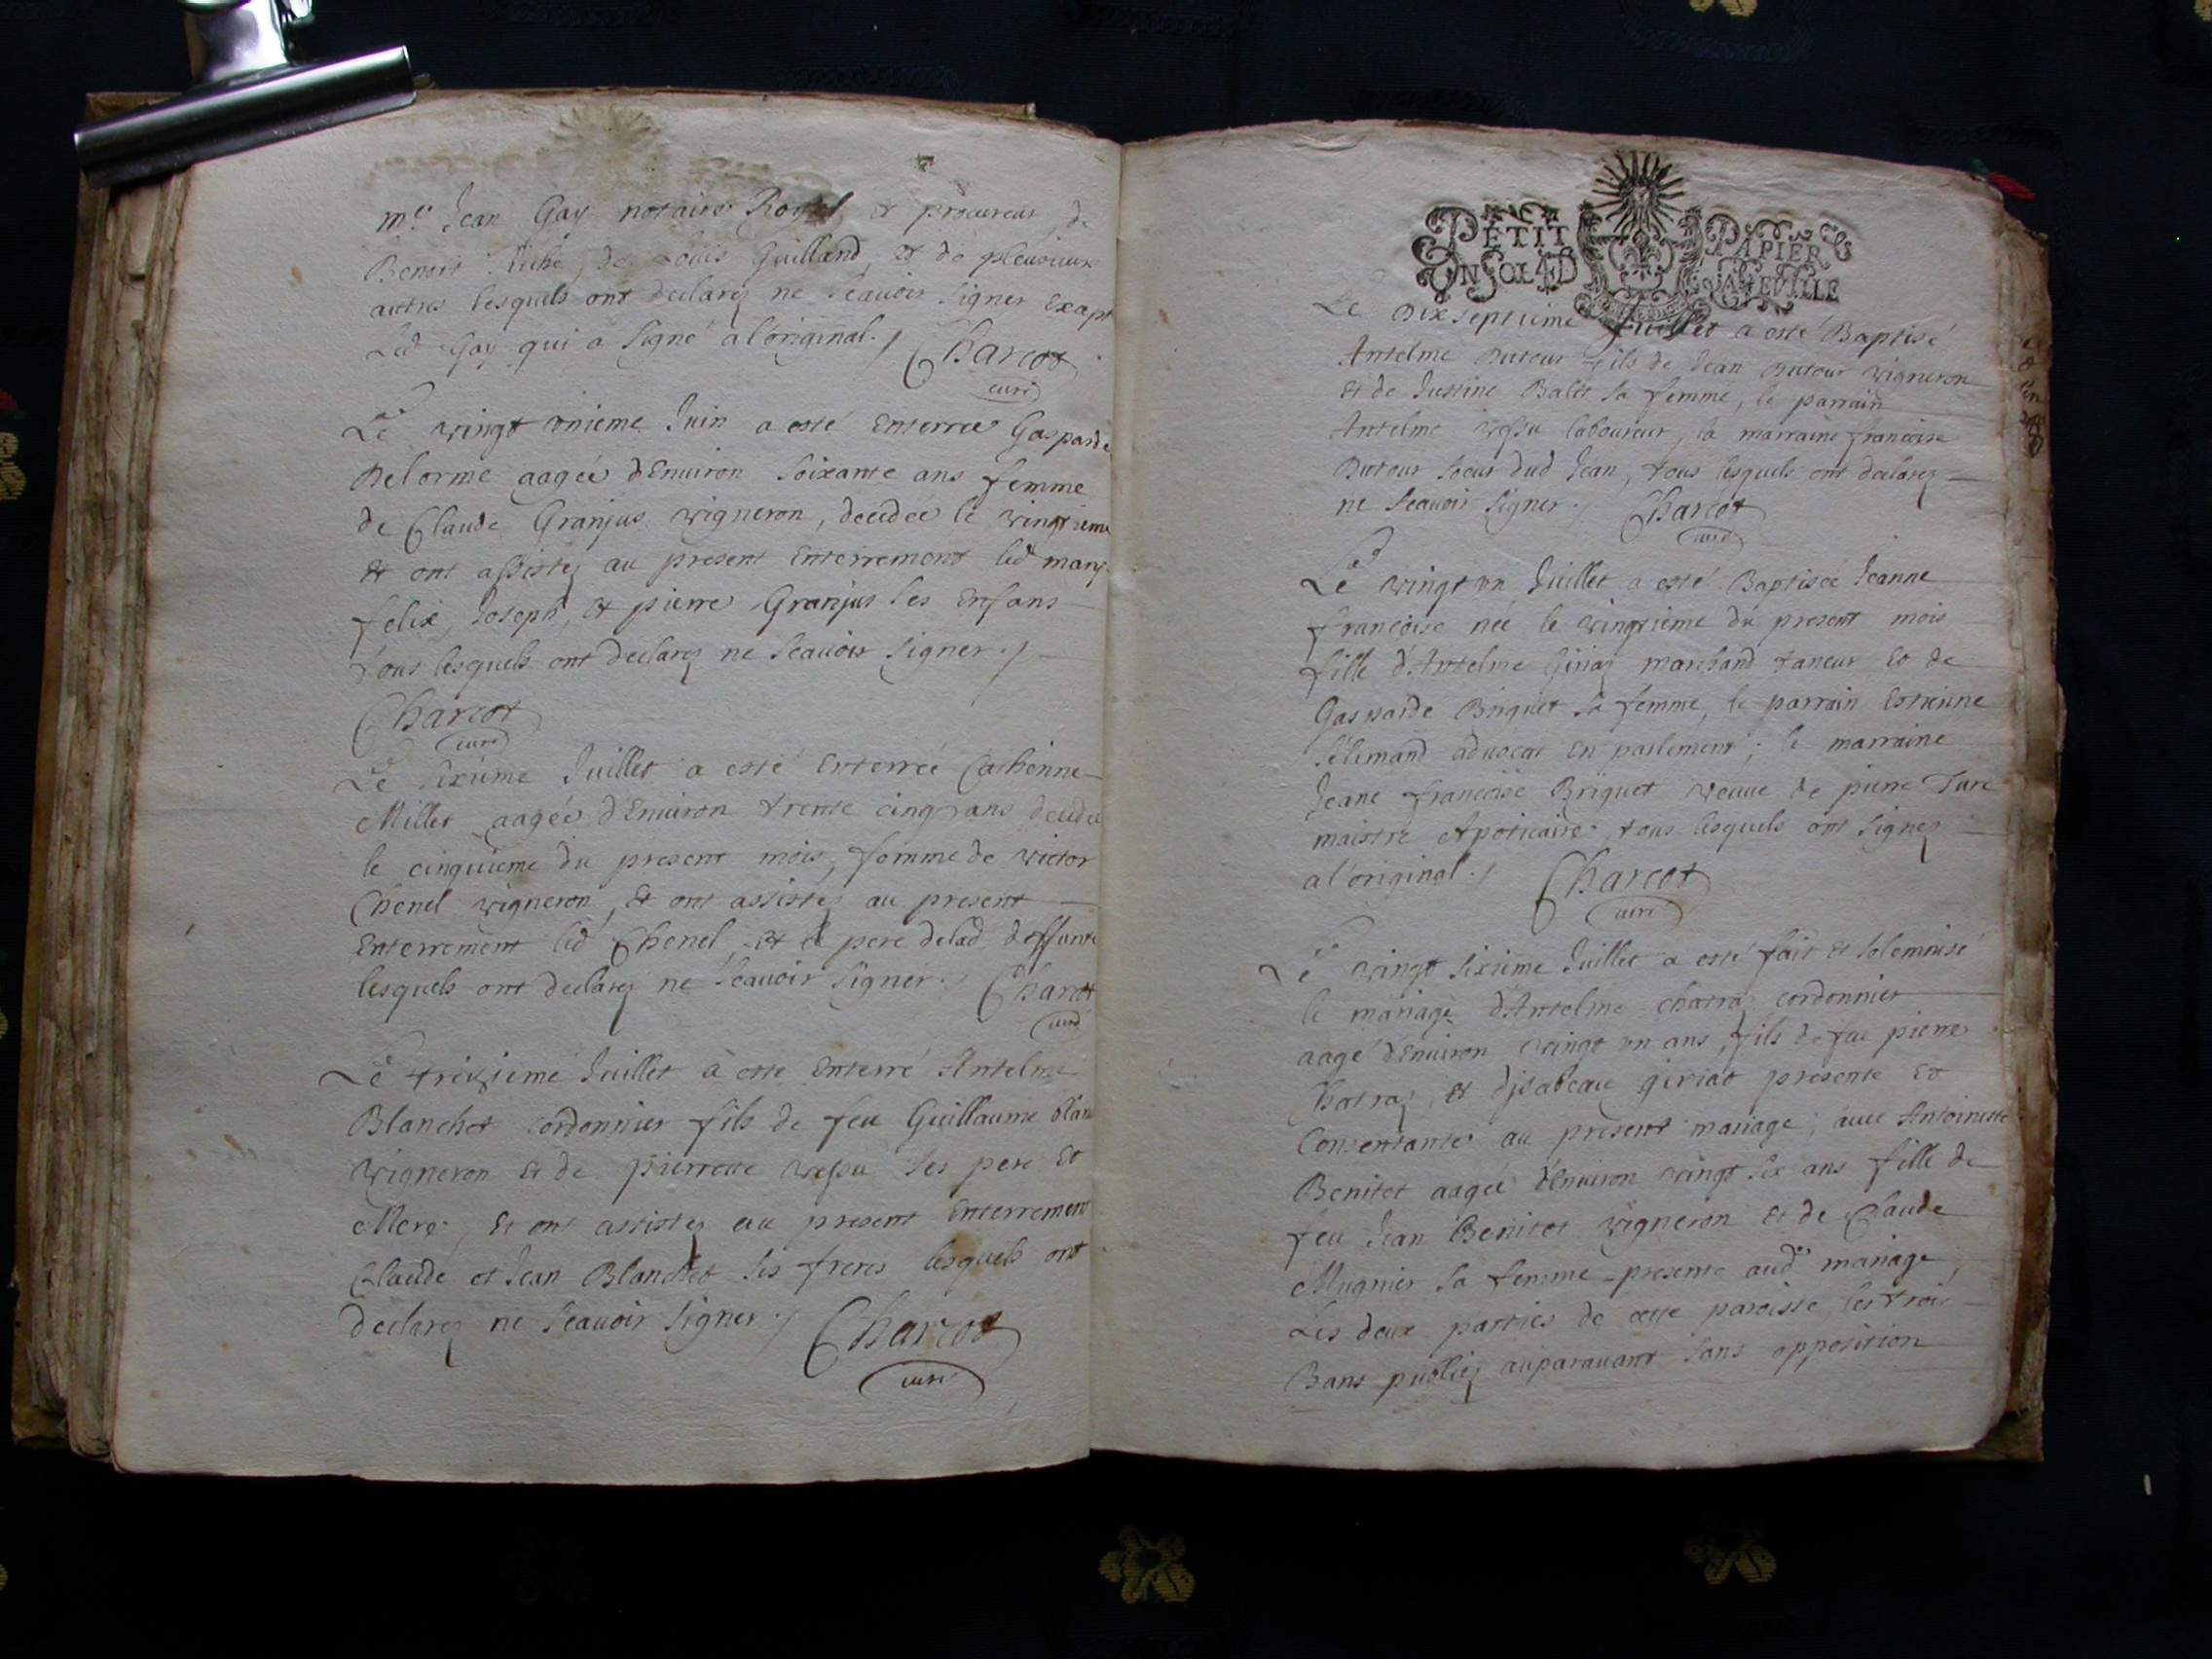 me Jean Gay notaire Royal et procureur, de
Benoit Riche, de Louis Guilland, et de pleusieurs
autres lesquels ont declarez ne scauoir signer Exapt
Led Gay qui a signé a l'original./ Charcot
curé
Le vingt vnieme Juin a esté Enterree Gasparde
Delorme aagée d'Enuiron soixante ans femme
de Claude Granjus vigneron, decedée le vingtieme
et ont assistez au present Enterrement led mary
felix, Joseph, et pierre Granjus ses Enfans
tous lesquels ont declarez ne scauoir signer./
Charcot
curé
Le sixieme Juillet a esté Enterrée Catherine
Millet aagée d'Enuiron trente cinq ans decedée
le cinquieme du present mois, femme de victor
Chenel vigneron, et ont assistez au present
Enterrement led Chenel, et le pere delad deffunte
lesquels ont declarez ne scauoir signer. Charcot
curé
Le treizieme Juillet a esté Enterré Antelme
Blanchet cordonnier fils de feu Guillaume blan
vigneron et de pierrette vessu ses pere et
Mere, et ont assistez au present Enterrement
Claude et Jean Blanchet ses freres lesquels ont
declarez ne scauoir signer./ Charcot
curé
PETIT PAPIER
VN SOL 4 D LA FEVILLE
Le Dixseptieme Juillet a esté Baptisé
Antelme Dutour fils de Jean Dutour vigneron
et de Justine Balet sa femme, le parrain
Antelme vessu laboureur, la marraine francoise
Dutour soeur dud Jean, tous lesquels ont declarez
ne scauoir signer./ Charcot
curé
Le vingt vn Juillet a esté Baptisée Jeanne
francoise née le vingtieme du present mois
fille d'Antelme marchand taneur et de
Gasparde Briquet sa femme, le parrain Estienne
aduocat en parlement; le marraine
Jeane francoise Briquet veuue de pierre Turc
maistre Apoticaire, tous lesquels ont signez
a l'original./ Charcot
curé
Le vingt sixieme Juillet a esté fait et solemnisé
le mariage d'Antelme Chatraz cordonnier
aagé d'Enuiron vingt vn ans, fils de feu pierre
Chatraz, et d'jsabeau giriat presente et
Consentante au present mariage; auec Antoinette
Benitet aagée d'Enuiron vingt six ans fille de
feu Jean Benitet vigneron et de Claude
Mugnier sa femme presente aud mariage;
Les deux parties de cette paroisse, les trois
Bans publiez auparauant sans opposition